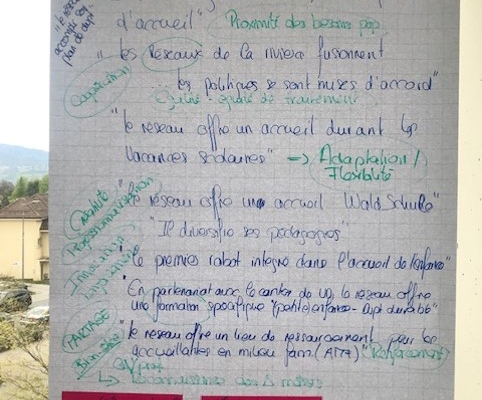 "le réseau
accomplit son
plan de dupt"
d'accueil" Proximité des besoins pop.
"les Réseaux de la riviera fusionnent
... les politiques se sont mises d'accord"
Coopération
Egalité - égalité de traitement
"le réseau offre un accueil durant les
vacances scolaires" → Adaptation /
Flexibilité
"le réseau offre un accueil Wald Schule"
"Il diversifie ses pédagogies"
"le premier robot intégré dans l'accueil de l'enfance"
"En partenariat avec le canton de VD, le réseau offre
une formation spécifique "(petite) enfance - Dupt durable"
PARTAGE
"le réseau offre un lieu de ressourcement pour les
accueillantes en milieu fam. (AMF)" Renforcement
Bien-être